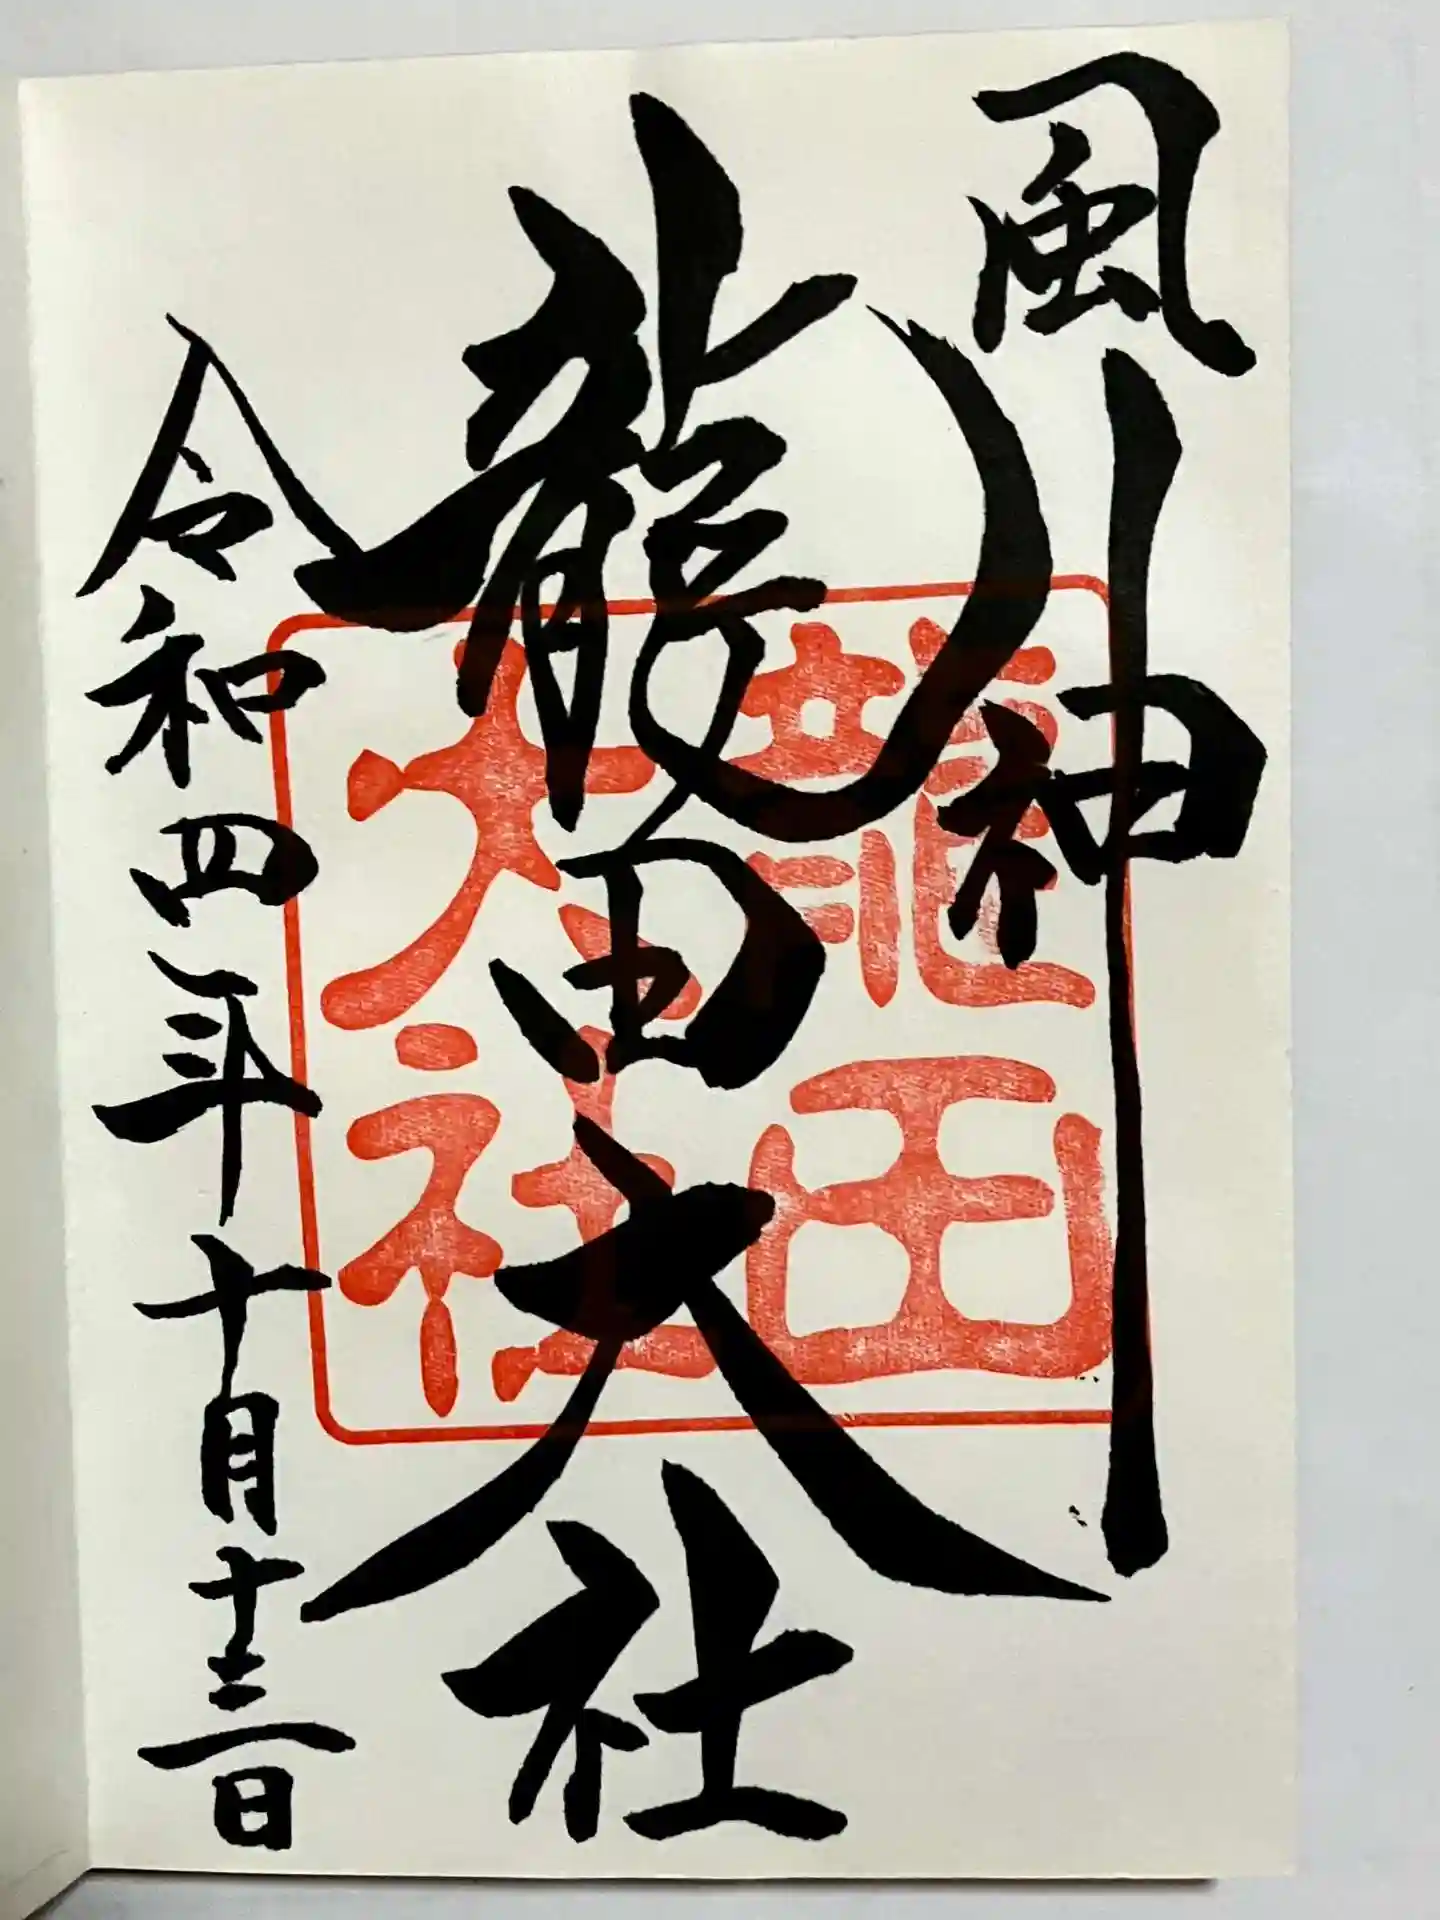 風神
龍田大社
令和四年十月十三日
龍田
大社